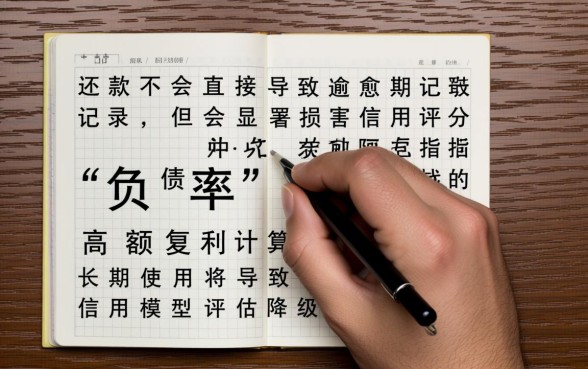 还款不会直接导致逾愈期记
记录，但会显署损害信用评分
指
“负债率” 的
高额复利计算
长期使用将导致
信用模型评估降级